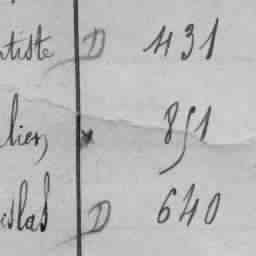 tiste D 431
lier, x 851
islas D 640